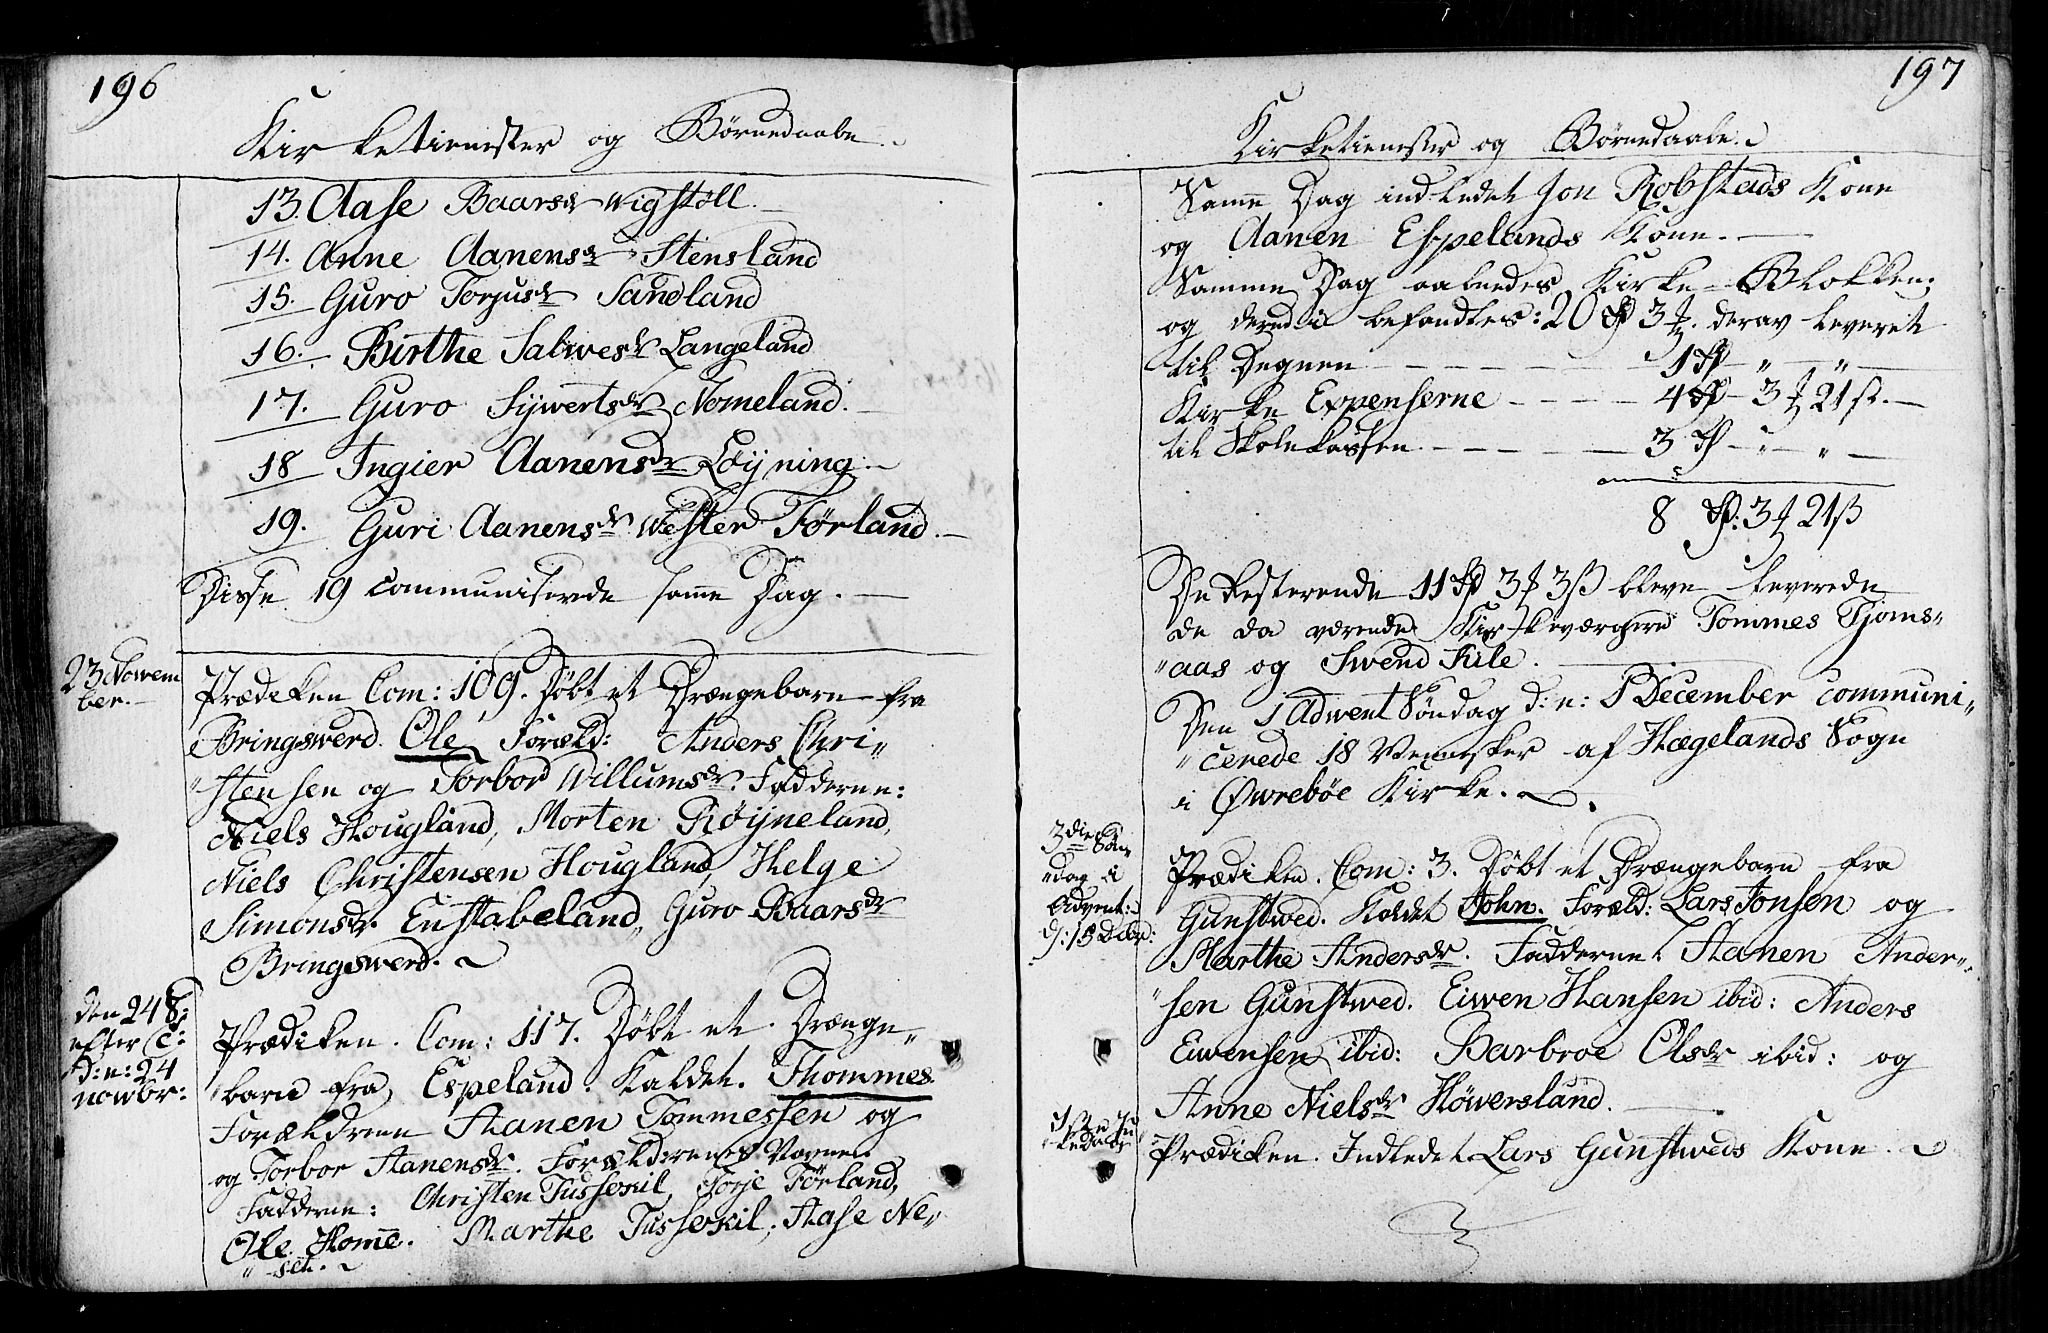 196
Kirketienister og Børnedaabe.
13. Aase Baarsdr Wigstøll.
14. Anne Aanensdr Stensland
15. Guro Torjusdr Sandland
16. Birthe Salwesdr Langeland
17. Guro Sywertsdr Nomeland.
18 Ingier Aanensdr Løyning
19. Guri Aanensdr Wester Førland.
Disse 19 communiserede samme Dag.
23 Nowem
ber.
Prædeken Com: 109. Døbt et Drængebarn fra
Bringswerd. Ole, Foræld: Anders Chri„
„stensen og Torbor Willumsdr. Fadderne:
Niels Hougland, Morten Røyneland,
Niels Christensen Hougland, Helge
Simonsdr. Enstabeland, Guro Baarsdr
Bringswerd.
den 24 S:
efter T:
d:n: 24
nowbr:
Prædiken. Com: 117. Døbt et Drænge„
barn fra Espeland. Kaldet. Thommes.
Forældrene Aanen Tommessen og
og Torbor Aanensdr. Forældrenes Navne.
Fadderne: Christen Tusseskil, Torje Førland,
Ole Home. Marthe Tusseskil, Aase Ne„
„set.
197
Kirketienister og Børnedaabe.
Samme Dag indledet Jon Robstads Kone
og Aanen Espelands Kone.
Samme Dag aabnedes Kirke-Blokken;
og derudi befandtes: 20 rd 3 mk. derav leveret
til Degnen 1 rd „ „
Kirke Expenserne 4 rd 3 mk 21 ß.
til Skolekassen 3 rd „ „
8 rd: 3 mk 21 ß
De Resterende 11 rd 3 mk 3 ß bleve leverede
de da værende Kirkeværgere Tommes Tjoms„
„aas og Swend Kile.
Den 1 Adwent Søndag d:n: 1 December communi„
„cerede 18 Mennisker af Hægelands Sogn
i Øwrebøe Kirke.
3die Søn„
„dag i
Advent:
d: 15 Decbr:
Prædiken. Com: 3. Døbt et Drængebarn fra
Gunstwed. Kaldet John. Foræld: Lars Jonsen og
Marthe Andersdr. Fadderne. Aanen Ander„
„sen Gunstwed. Eiwen Hansen ibid: Anders
Eiwensen ibid: Barbroe Olsdr ibid: og
Anne Nielsdr Høwersland.
1ste Ju
ledag
Prædiken. Indledet Lars Gunstweds Kone.